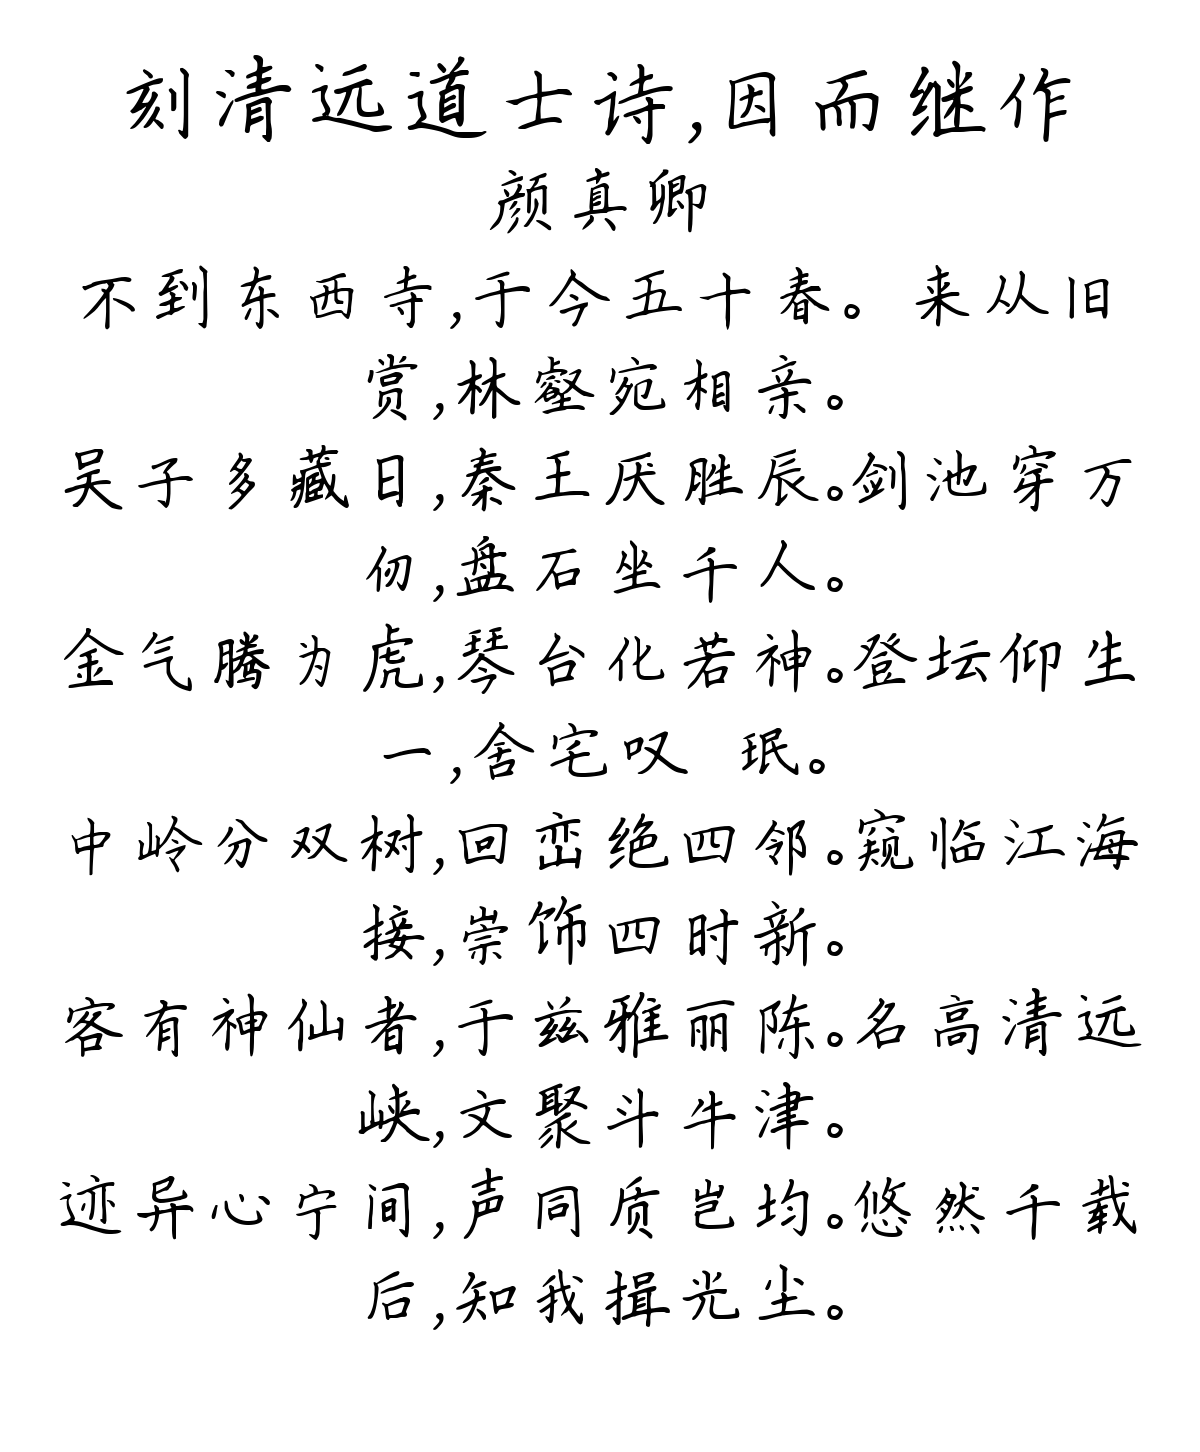 刻清远道士诗,因而继作
颜真卿
不到东西寺,于今五十春。来从旧
赏,林壑宛相亲。
吴子多藏日,秦王厌胜辰。剑池穿万
仞,盘石坐千人。
金气腾为虎,琴台化若神。登坛仰生
一,舍宅叹 珉。
中岭分双树,回峦绝四邻。窥临江海
接,崇饰四时新。
客有神仙者,于兹雅丽陈。名高清远
峡,文聚斗牛津。
迹异心宁间,声同质岂均。悠然千载
后,知我揖光尘。